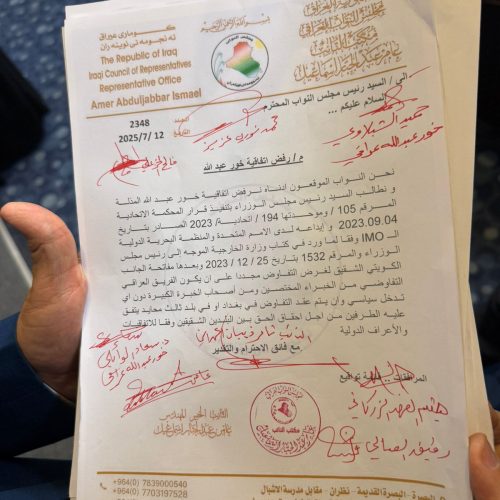 بسم الله الرحمن الرحيم
كۆماری عیراق
The Republic of Iraq
Iraqi Council of Representatives
Representative Office
Amer Abduljabbar Ismael
مجلس النواب العراقي
مكتب النائب
عامر عبد الجبار اسماعيل
العدد 2348
التاريخ 2025/7/12
الى / السيد رئيس مجلس النواب المحترم
السلام عليكم ...
خور عبدالله عراقي
م / رفض اتفاقية خور عبد الله
نحن النواب الموقعون ادناه نرفض اتفاقية خور عبد الله المذلة
ونطالب السيد رئيس مجلس الوزراء بتنفيذ قرار المحكمة الاتحادية
المرقم 105 / وموحدتها 194 / اتحادية/ 2023 الصادر بتاريخ
2023.09.04 و إيداعه لدى الامم المتحدة والمنظمة البحرية الدولية
الـ IMO وفقا لما ورد في كتاب وزارة الخارجية الموجه إلى رئيس مجلس
الوزراء والمرقم 1532 بتاريخ 25 / 12 / 2023 وبعدها مفاتحة الجانب
الكويتي الشقيق لغرض التفاوض مجددا على ان يكون الفريق العراقي
التفاوضي من الخبراء المختصين ومن أصحاب الخبرة الكبيرة دون أي
تدخل سياسي وان يتم عقد التفاوض في بغداد او في بلد ثالث محايد يتفق
عليه الطرفين من اجل احقاق الحق بين البلدين الشقيقين وفقا للاتفاقيات
والأعراف الدولية
مع فائق الاحترام والتقدير
خور عبدالله عراقي
تواقيع
النائب
عامر عبد الجبار اسماعيل
البصرة - البصرة القديمة - نظران - مقابل مدرسة الاشبال
+964(0) 7839000540
+964(0) 7703197528